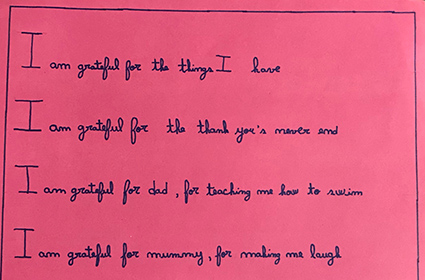 I am grateful for the things I have
I am grateful for the thank you's never end
I am grateful for dad, for teaching me how to swim
I am grateful for mummy, for making me laugh